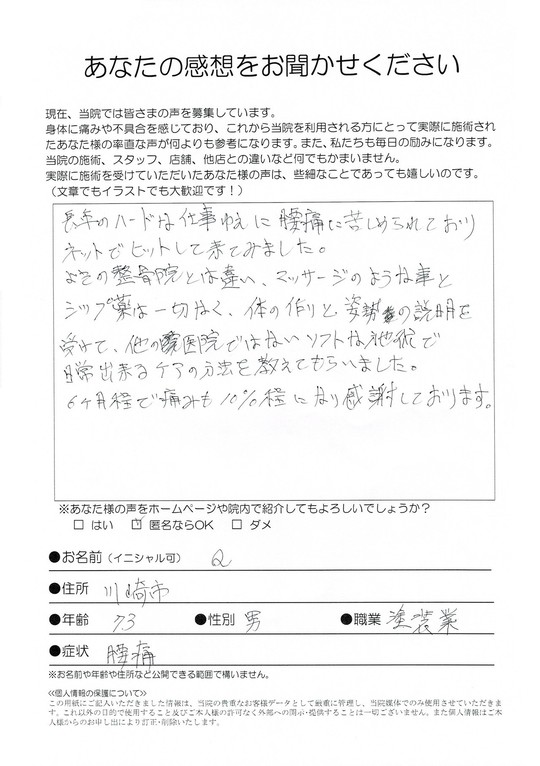 あなたの感想をお聞かせください
現在、当院では皆さまの声を募集しています。
身体に痛みや不具合を感じており、これから当院を利用される方にとって実際に施術され
たあなた様の率直な声が何よりも参考になります。また、私たちも毎日の励みになります。
当院の施術、スタッフ、店舗、他店との違いなど何でもかまいません。
実際に施術を受けていただいたあなた様の声は、些細なことであっても嬉しいのです。
（文章でもイラストでも大歓迎です！）
長年のハードな仕事ゆえに腰痛に苦しめられており
ネットでヒットして来てみました。
よその整骨院とは違い、マッサージのような事と
シップ薬は一切なく、体の作りと姿勢の説明を
受けて、他の医院ではないソフトな施術で
日常出来るケアの方法を教えてもらいました。
6ヶ月程で痛みも10%程になり感謝しております。
※あなた様の声をホームページや院内で紹介してもよろしいでしょうか？
□ はい ☑ 匿名ならOK □ ダメ
●お名前（イニシャル可） Q
●住所 川崎市
●年齢 73 ●性別 男 ●職業 塗装業
●症状 腰痛
※お名前や年齢や住所など公開できる範囲で構いません。
≪個人情報の保護について≫
この用紙にご記入いただきました情報は、当院の貴重なお客様データとして厳重に管理し、当院媒体でのみ使用させていただきま
す。これ以外の目的で使用すること及びご本人様の許可なく外部への開示・提供することは一切ございません。また個人情報はご本
人様からのお申し出により訂正・削除いたします。